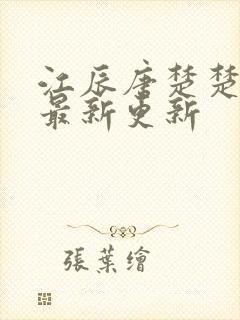 江辰唐楚楚
最新更新
張葉繪